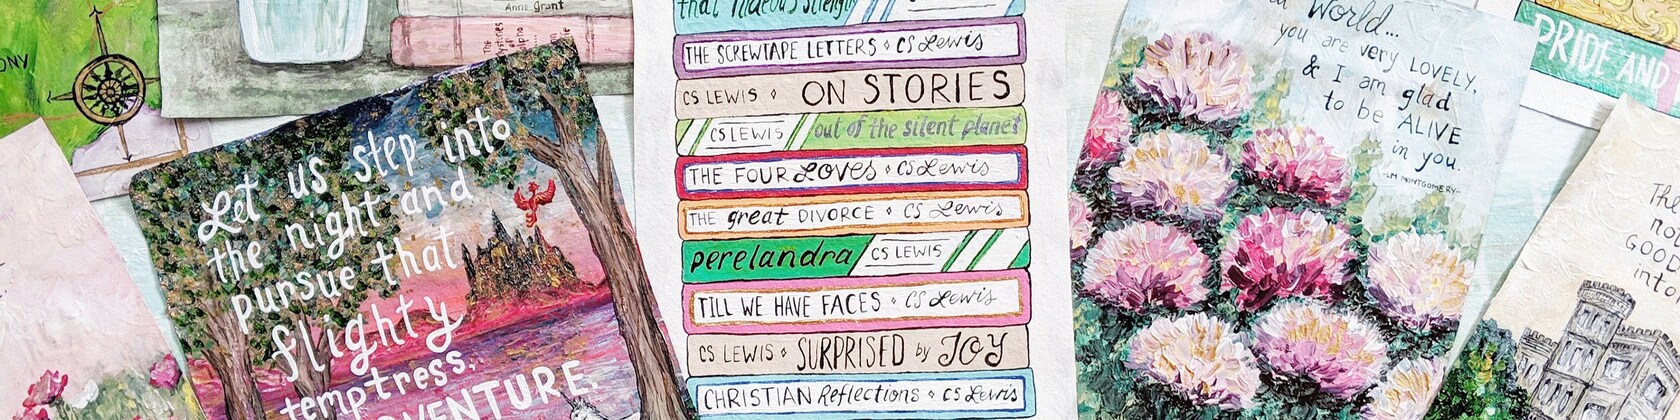 ONY
Anne Grant
Mysteries
of
Let us step into
the night and
pursue that
flighty
temptress,
ADVENTURE.
that hideous strength
THE SCREWTAPE LETTERS CS Lewis
CS LEWIS ON STORIES
CS LEWIS out of the silent planet
THE FOUR LOVES CS Lewis
THE great DIVORCE CS Lewis
perelandra CS LEWIS
TILL WE HAVE FACES CS Lewis
CS LEWIS SURPRISED by JOY
CHRISTIAN Reflections CS Lewis
World...
you are very LOVELY,
& I am glad
to be ALIVE
in you.
-LM MONTGOMERY-
PRIDE AND
The
GOOD
into